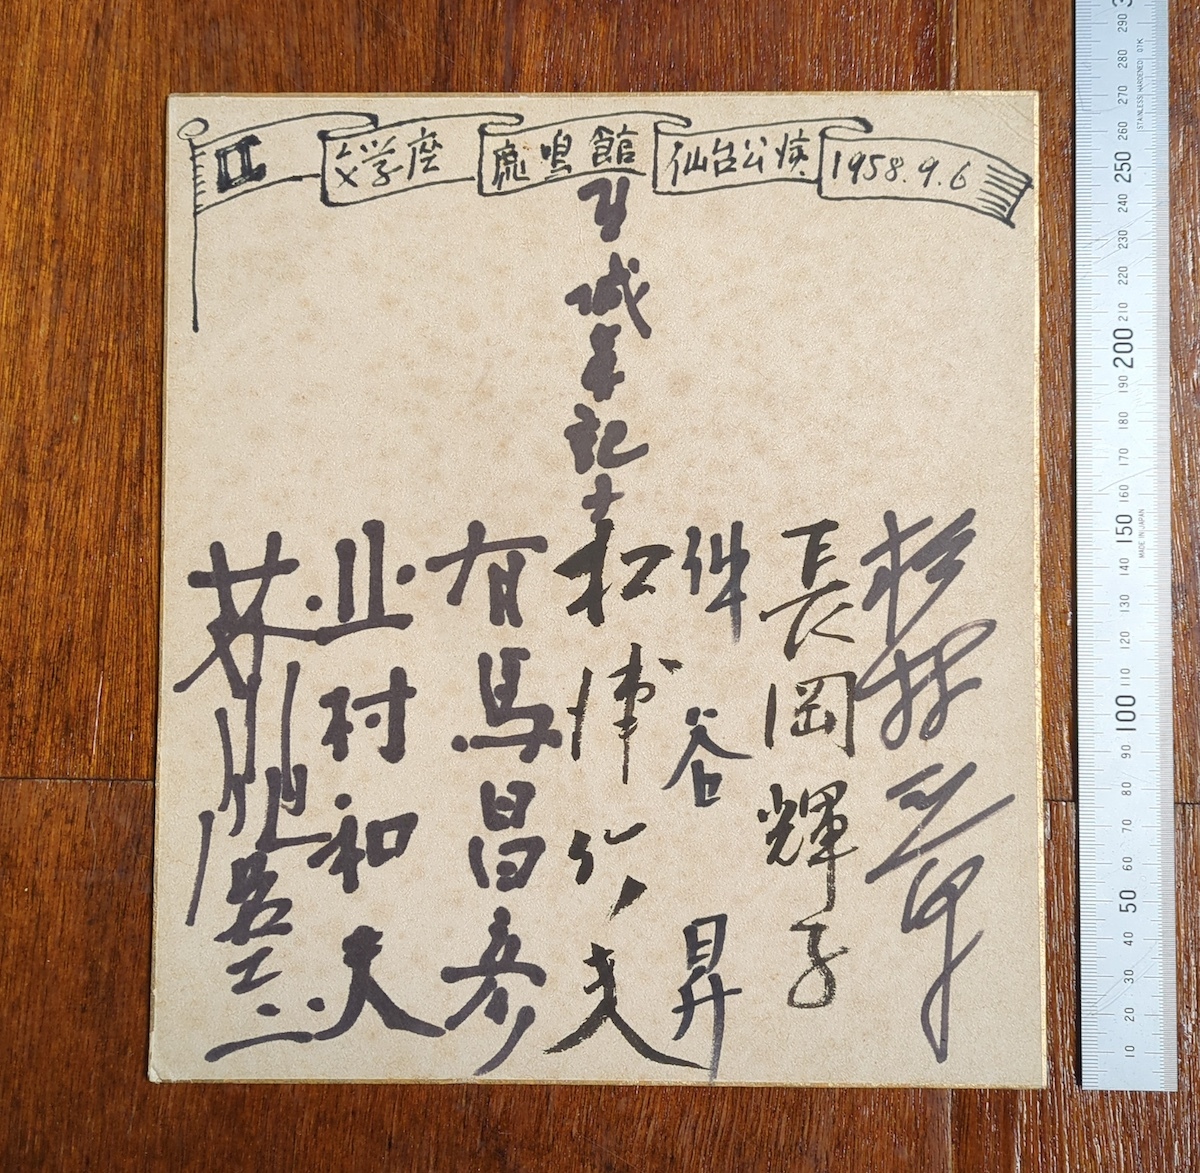 文学座 鹿鳴館 仙台公演 1958.9.6
杉村春子
長岡輝子
仲谷昇
松浦竹夫
有馬昌彦
北村和夫
芥川比呂志
290
280
270
260
250
240
230
220
210
200
190
180
170
160
150
140
130
120
110
100
90
80
70
60
50
40
30
20
10
MADE IN JAPAN